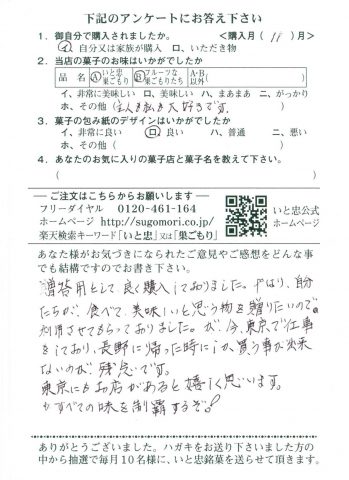 下記のアンケートにお答え下さい
1．御自分で購入されましたか。 <購入月( 11 )月>
イ、自分又は家族が購入 ロ、いただき物
2．当店の菓子のお味はいかがでしたか
品 名 Aいと忠巣ごもり Bフルーツな巣ごもりたち A・B以外( )
イ、非常に美味しい ロ、美味しい ハ、まあまあ ニ、まがっかり
ホ、その他(主人も私も大好きです。)
3．菓子の包み紙のデザインはいかがでしたか
イ、非常に良い ロ、良い ハ、普通 ニ、悪い
ホ、その他( )
4．あなたのお気に入りの菓子店と菓子名を教えて下さい。
( )
ご注文はこちらからお願いします
フリーダイヤル 0120-461-164
ホームページ http://sugomori.co.jp/
楽天検索キーワード「いと忠」又は「巣ごもり」
いと忠公式
ホームページ
あなた様がお気づきになられたご意見やご感想をどんな事
でも結構ですのでお書き下さい。
贈答用として良く購入しておりました。やはり、自分
たちが、食べて、美味しいと思う物を贈りたいので。
利用させてもらっておりました。が、今、東京で仕事
をしており、長野に帰った時にしか、買う事が出来
ないのが、残念です。
東京にもお店があると嬉しく思います。
すべての味を制覇するぞ!
ありがとうございました。ハガキをお送り下さいました方の
中から抽選で毎月10名様に、いと忠銘菓を送らせて頂きます。